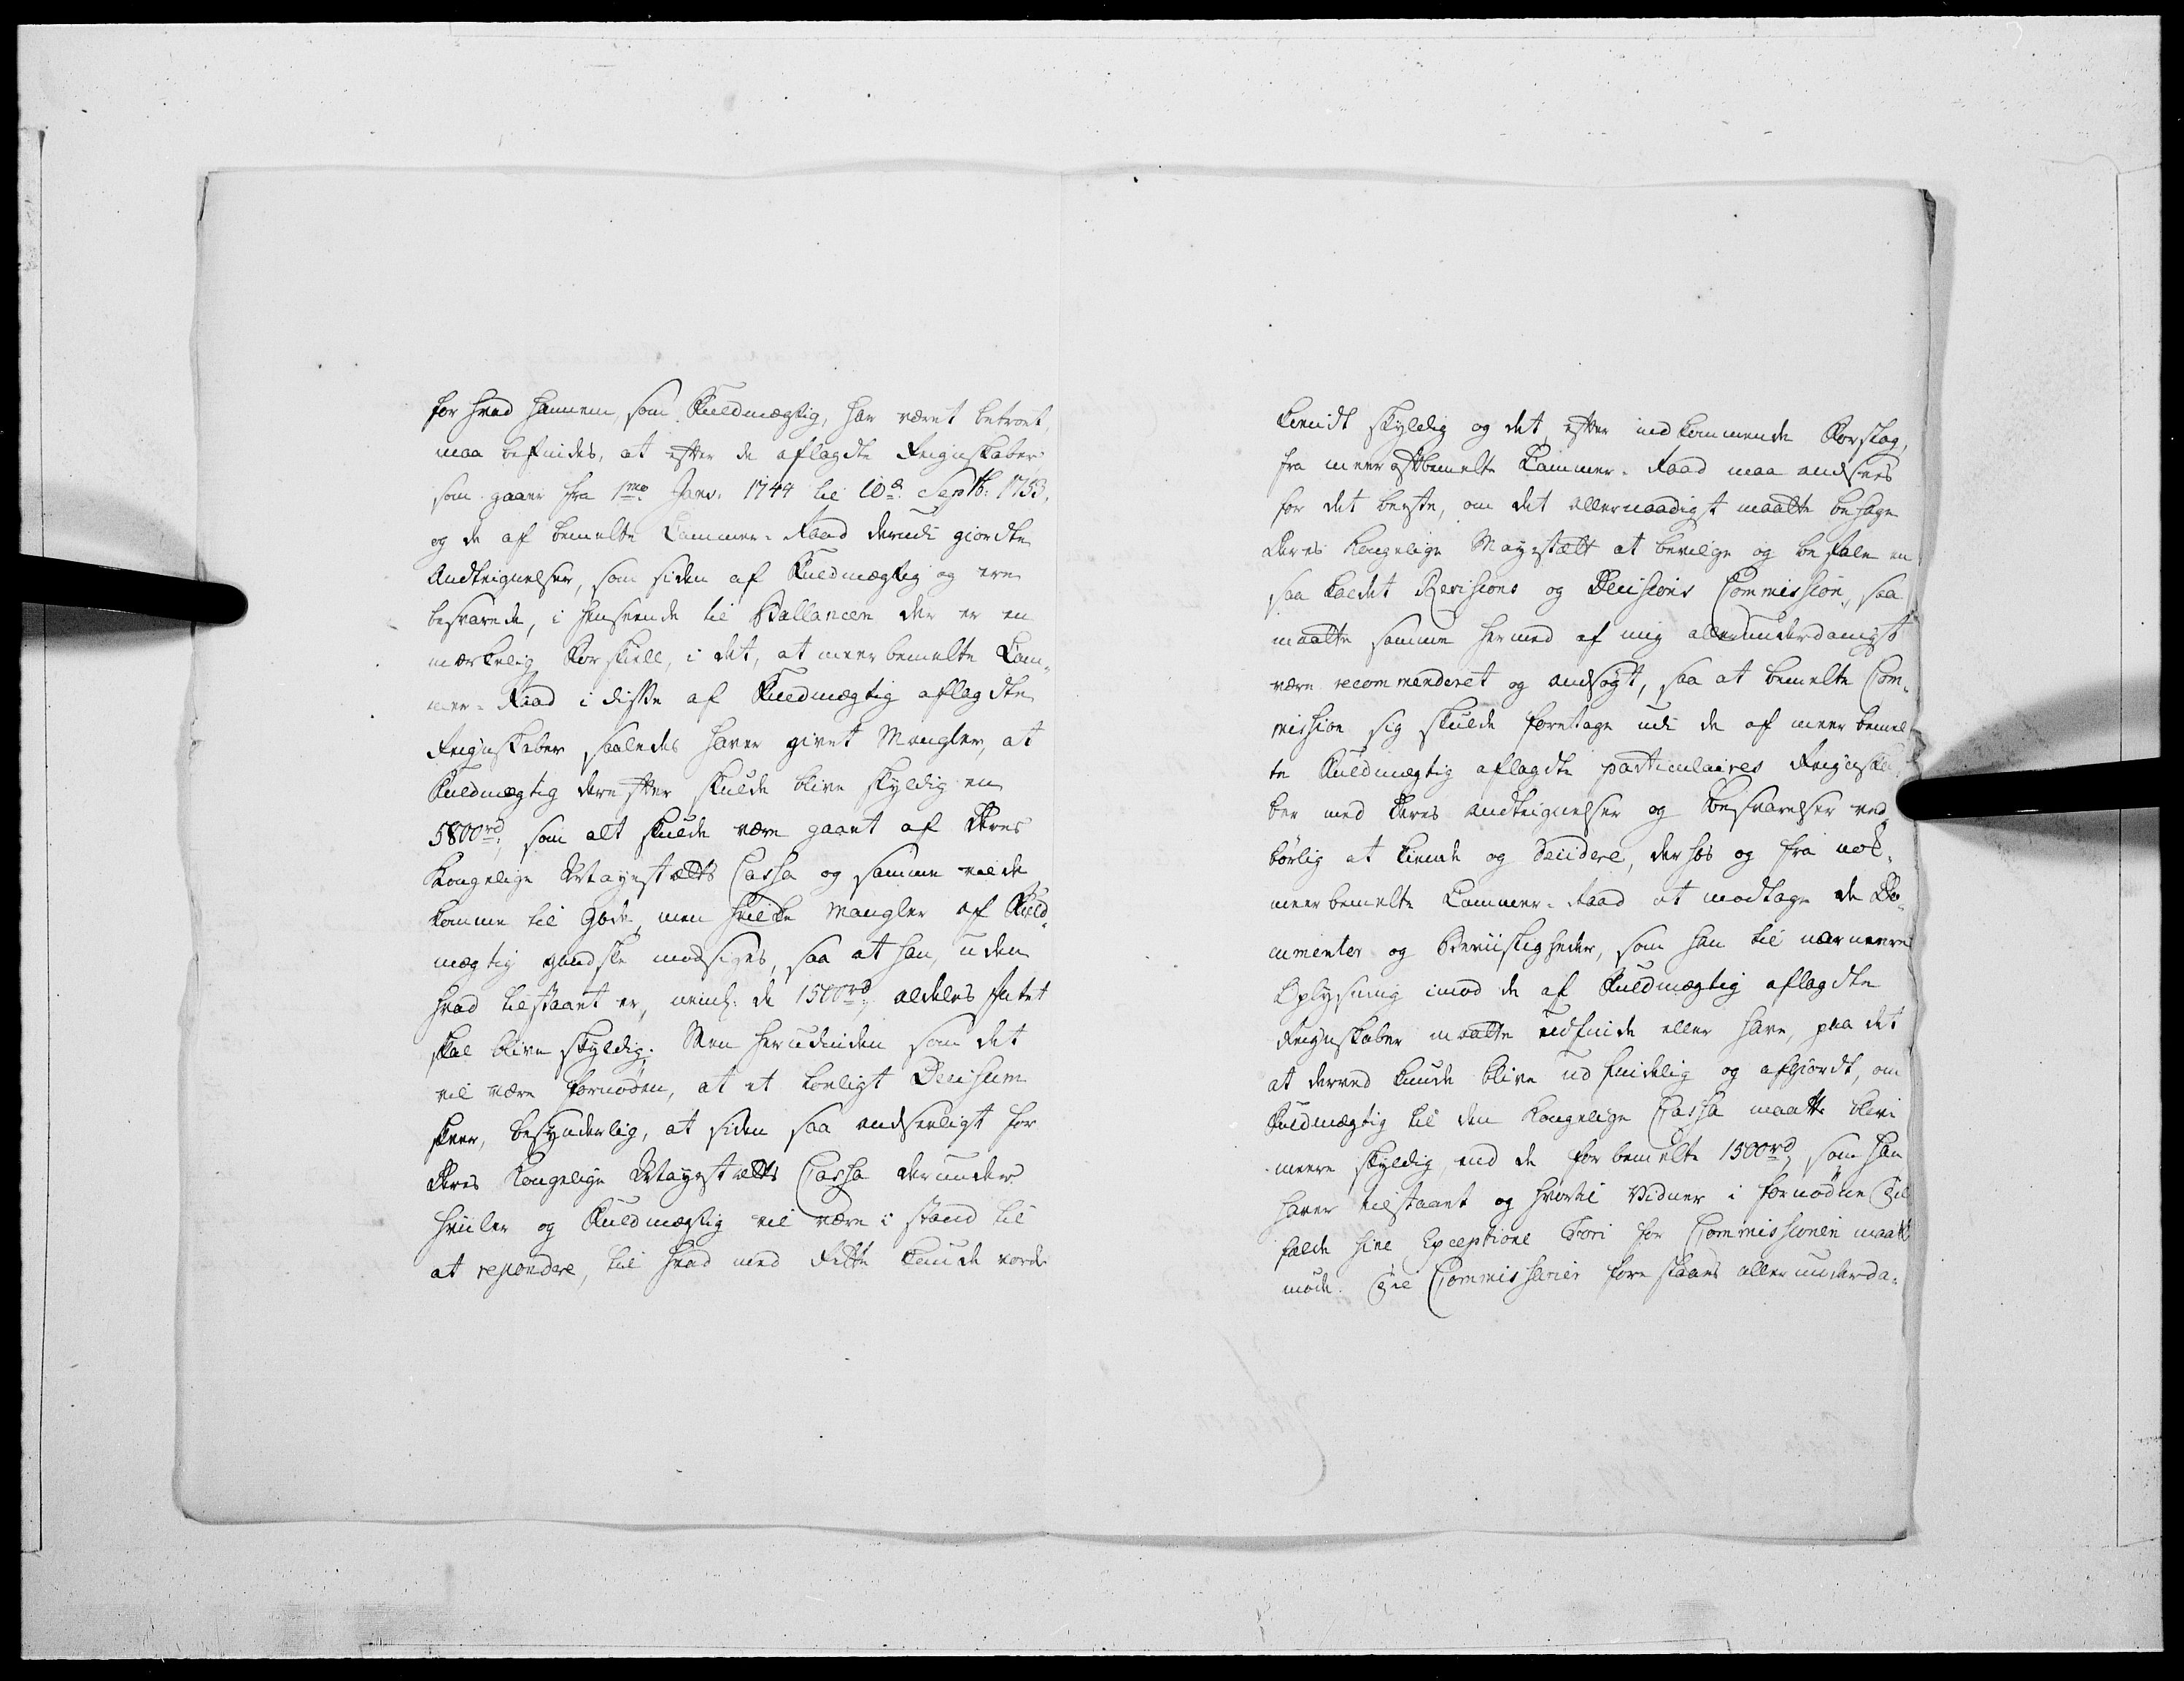 for hvad hannem, som Fuldmægtig, har været betroet,
maa befindes, at efter de aflagdte Reignskaber
som gaaer fra 1mo Janv. 1744 til 10de Septb: 1753,
og de af bemelte Cammer-Raad derudi giordte
Andteignelser, som siden af Fuldmægtig og ere
besvarede, i henseende til Ballancen der er en
mærkelig Forskiell, i det, at meerbemelte Cam-
mer-Raad i disse af Fuldmægtig aflagdte
Reignskaber saaledes haver givet Mangler, at
Fuldmægtig derefter skulde blive skyldig en
5800rd; som alt skulde være gaaet af Deres
Kongelige Mayestætts Cassa og samme vilde
komme til Gode, men hvilke Mangler af Fuld-
mægtig gandske modsiges, saa at han, uden
hvad tilstaaet er, neml: de 1500rd, aldeles intet
skal blive skyldig. Men herudinden som det
vil være fornøden, at et lovligt Decisum
skeer, besynderlig, at siden saa andseeligt for
Deres Kongelige Mayestætts Cassa derunder
hviler og Fuldmægtig vil være i stand til
at repondere, til hvad med Rette kunde vorde
kiendt skyldig og det, efter indkommende Forslag,
fra meer oftbemelte Cammer-Raad maa andsees
for det beste, om det allernaadigst maatte behage
Deres Kongelige Mayestætt at bevilge og befale en
saa kaldet Revisions og Decisions Commission, saa
maatte samme hermed af mig allerunderdanigst
være recommenderet og andsøgt, saa at bemelte Com-
mission sig skulde foretage udi de af meer bemel-
te Fuldmægtig aflagdte particulaires Reignska-
ber med Deres Andteignelser og Besvarelser ved-
børlig at kiende og Decidere, derhos og fra
meerbemelte Cammer-Raad at modtage de Do-
cumenter og Beviisligheder, som han til nærmere
Oplysning imod de af Fuldmægtig aflagdte
Reignskaber maatte udfinde eller have, paa det
at derved kunde blive udfindelig og afgiordt, om
Fuldmægtig til den Kongelige Cassa maatte blive
meere skyldig, end de forbemelte 1500rd, som han
haver tilstaaet og hvortil Vidner i fornødne Til-
fælde sine Exceptione Fori for Commissionen maatte
møde. Til Commissarier forestaaes allerunderda-